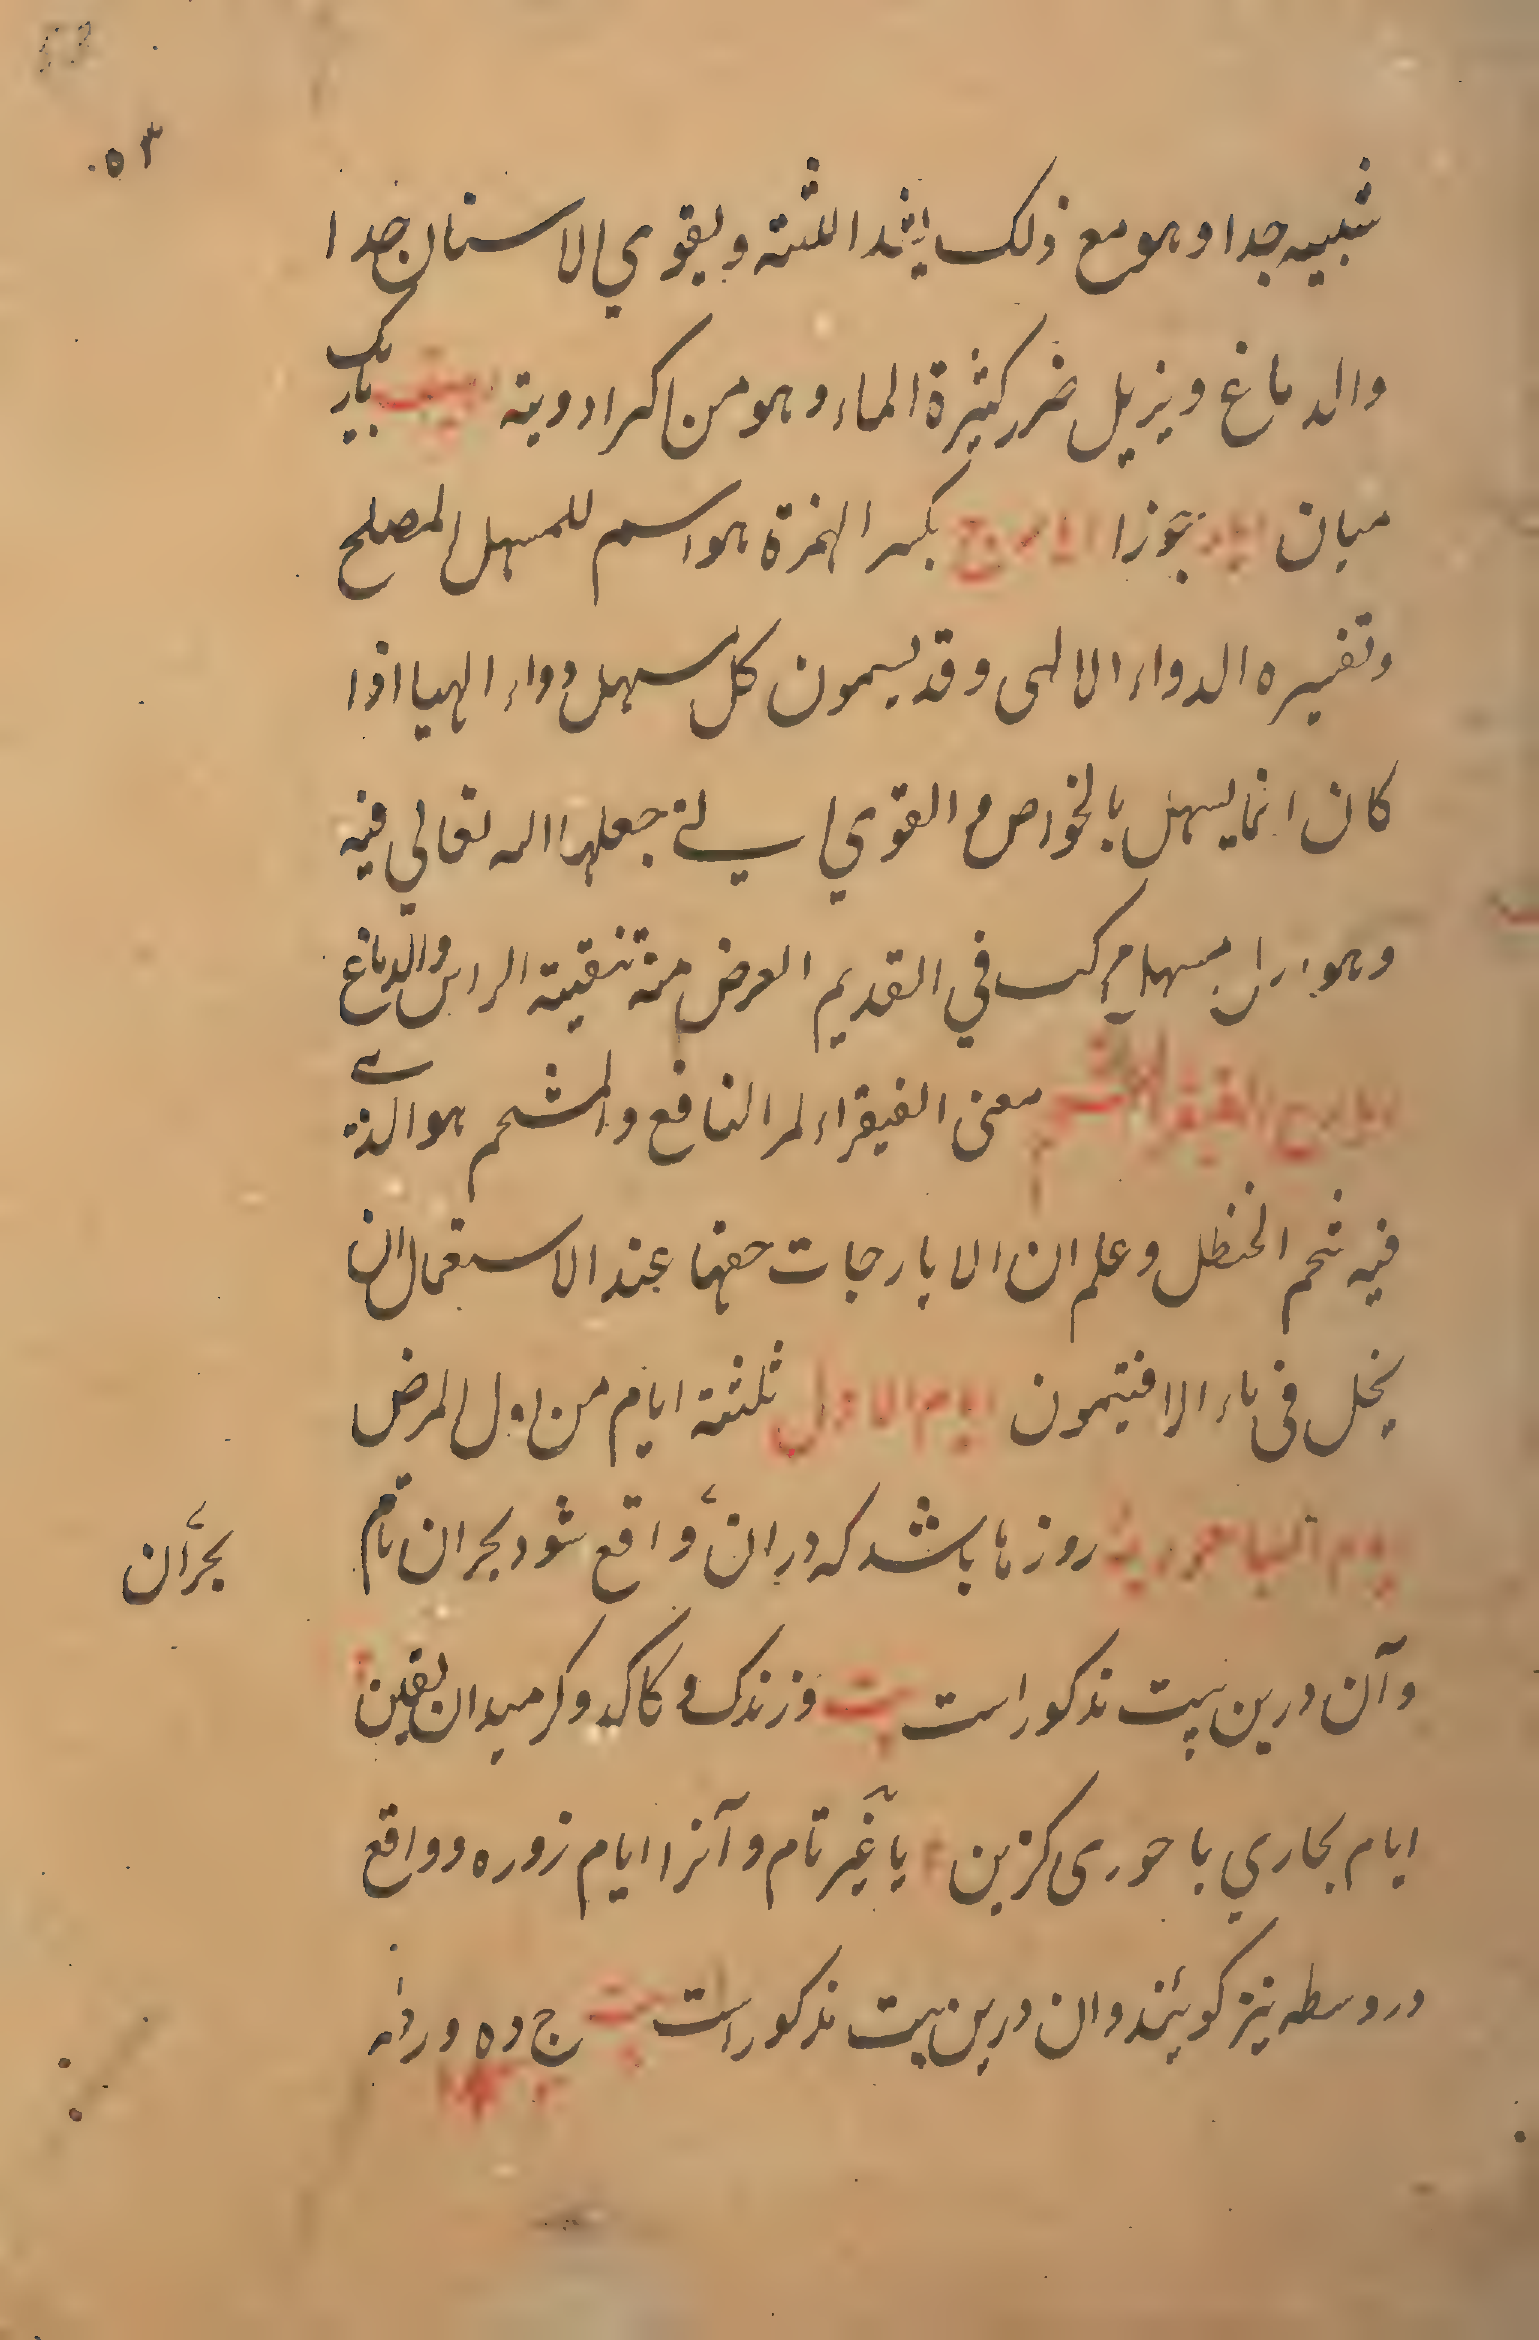 ٥٣
شبيه جدا وهو مع ذلك يشد اللثة ويقوي الاسنان جدا
والدماغ ويزيل ضرر كثرة الماء وهو من اكبر ادويته باريك
ميان بتوزا بكسر الهمزة هو اسم للمسهل المصلح
وتفسيره الدواء الالهى وقد يسمون كل مسهل دواء الهيا اذا
كان انما يسهل بالخواص و القوي التي جعلها الله تعالي فيه
وهو اول مسهل مركب في القديم الغرض منه تنقية الراس والدماغ
ايارج الفيقرا المشحم معنى الفيقراء لمر النافع والمشحم هو الذي
فيه شحم الحنظل وعلم ان الايارجات حقها عند الاستعمال ان
يحل فى ماء الافتيمون يوم الاول ثلثة ايام من اول المرض
يوم الباحوريه روزها باشد كه دران واقع شود بحران تام
بحران
وآن درين بيت مذكور است بيت وزندك و كاكد وكر ميدان يقين
ايام بحاري باحورى كزين يا غير تام وآنرا ايام زوره وواقع
دروسطه نيز كويند وان درين بيت مذكور است بيت ج ده ورد